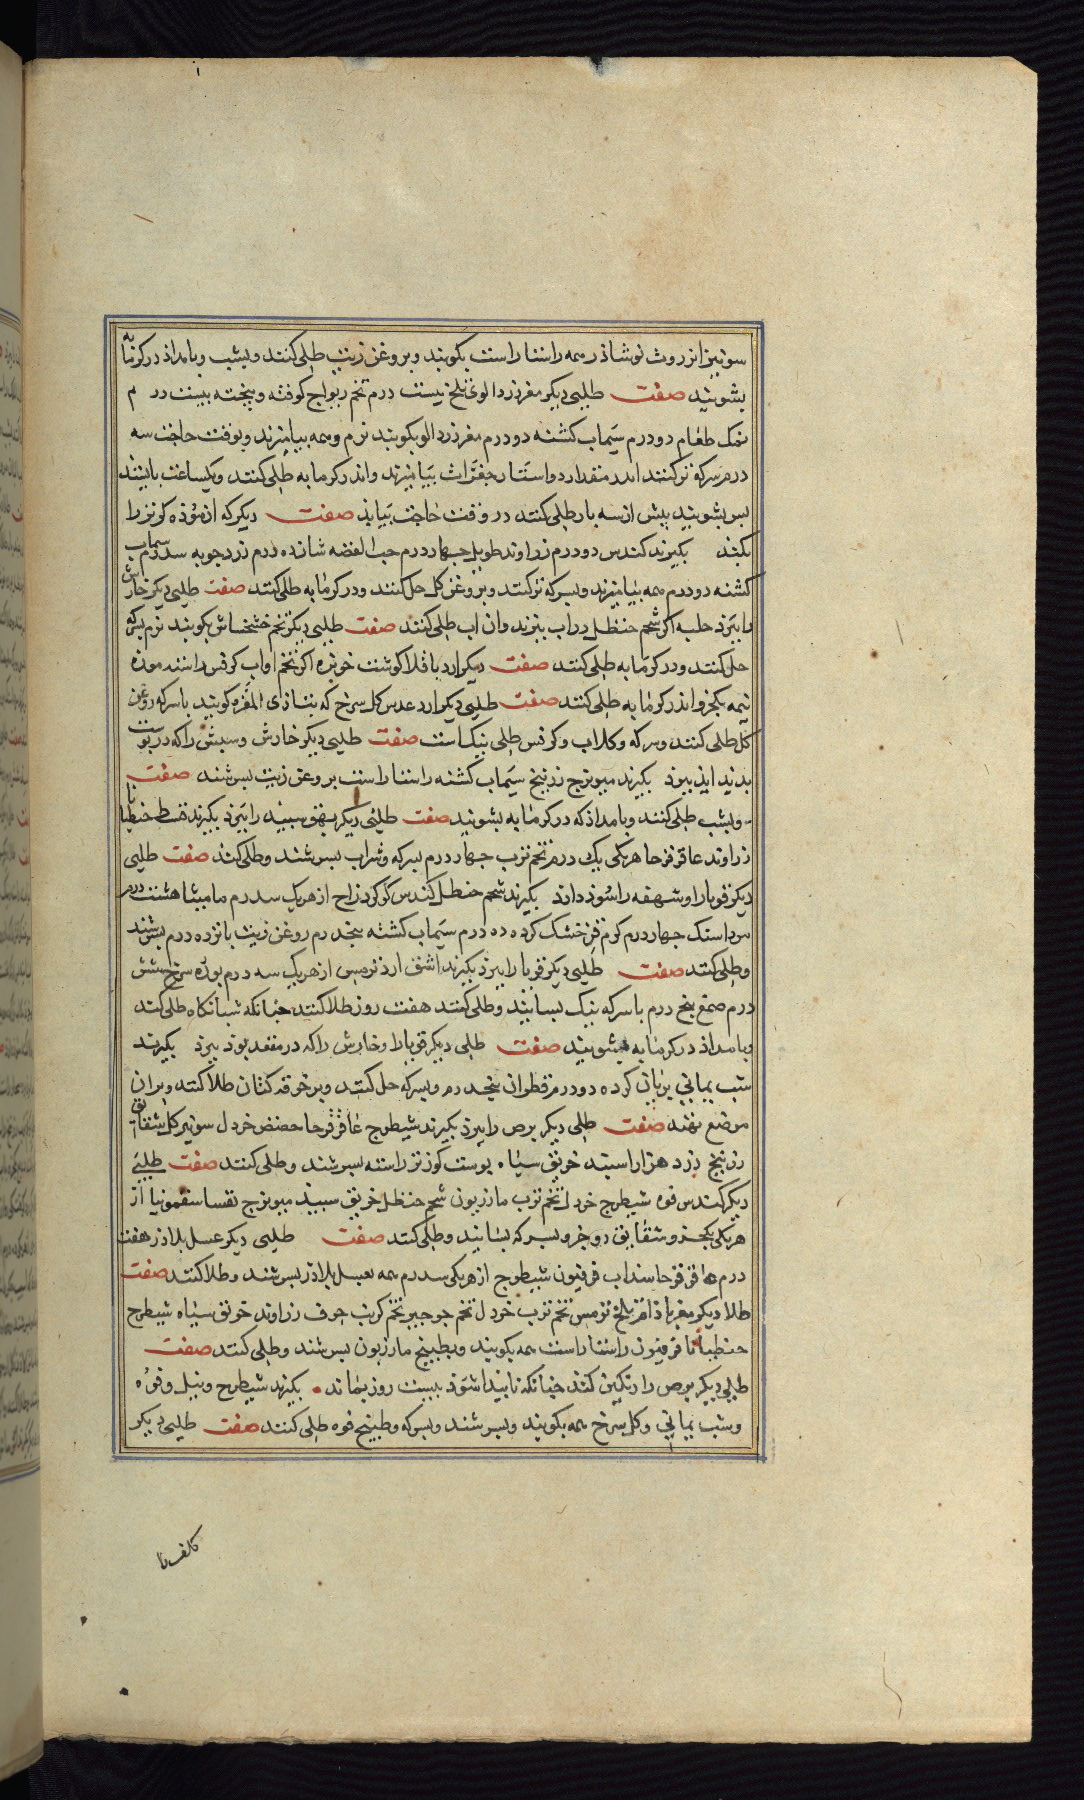 انزروت نوشاذر همه راستا راست بکوبند و بروغن زیت طلی کنند و بشب و بامداذ در کرمابه
بشویند صفت طلیی دیکر مغز زردالوی تلخ بیست درم تخم کوفته و بیخته بیست درم
نمک طعام دو درم سیماب کشته دو درم مغز زردالو بکوبند نرم و همه بیامیزند و بوقت حاجت سه
درم سرکه تر کنند اندر مقدار دو استار جغرات بیامیزند و اندر کرمابه طلی کنند و یکساعت
بس بشویند بیش از سه بار طلی کنند در وقت حاجت بیاید صفت دیکر که
بکند بکیرند کندس دو درم زراوند طویل جهار درم شانزده درم زردجوبه سه درم سیماب
کشته دو درم همه بیامیزند و بسرکه تر کنند و بروغن کل حل کنند و در کرمابه طلی کنند صفت طلیی دیکر خارش
را ببرذ حلبه اکر شحم حنظل در اب ببزند و ان اب طلی کنند صفت طلیی دیکر تخم خشخاش بکوبند نرم بسرکه
حل کنند و در کرمابه طلی کنند صفت دیکر ارد باقلا کوشت خربزه اکر تخم او اب کرفس
نیمه یکجزو اندر کرمابه طلی کنند صفت طلیی دیکر ارد عدس کل سرخ که کوبند با سرکه روغن
کل طلی کنند و سرکه و کلاب و کرفس طلی نیک است صفت طلیی دیکر خارش و سبش را که در بوست
بدید اید ببرذ بکیرند میویزج زرنیخ سیماب کشته راستا راست بروغن زیت بسرشند صفت
و بشب طلی کنند و بامداذ که در کرمابه بشویند صفت طلیی دیکر بهق سبید را ببرذ بکیرند قسط جنطیانا
زراوند عاقرقرحا هر یکی یک درم تخم ترب جهار درم بسرکه و شراب بسرشند و طلی کنند صفت طلیی
دیکر قوبا را و شهفه را سوذ دارذ بکیرند شحم حنظل کندس کوکرد زاج از هر یک سه درم مامیثا هشت درم
مرداسنک جهار درم کرم قز خشک کرده ده درم سیماب کشته بنجدرم روغن زیت بانزده درم بسرشند
و طلی کنند صفت طلیی دیکر قوبا را ببرذ بکیرند اشق ارد ترمس از هر یک سه درم بوره سرخ شش
درم صمغ بنج درم با سرکه نیک بسایند و طلی کنند هفت روز طلا کنند جنانکه شبانکاه طلی کنند
و بامداذ در کرمابه بشویند صفت طلی دیکر قوبا را و خارش را که در مقعد بوذ ببرذ بکیرند
شب یمانی بریان کرده دو درم قطران بنجدرم و بسرکه حل کنند و بر خرقه کتان طلا کنند و بران
موضع نهند صفت طلی دیکر برص را ببرذ بکیرند شیطرج عاقرقرحا حضض خردل شونیز کل شقایق
زرنیخ زرد هزاراسبند خربق سیاه بوست کوز تر راسته بسرشند و طلی کنند صفت طلیی
دیکر کندس فوه شیطرج خردل تخم ترب مازریون شحم حنظل خربق سبید میویزج سقمونیا از
هر یکی یکجزو شقایق دو جزو بسرکه بسایند و طلی کنند صفت طلیی دیکر عسل بلاذر هفت
درم عاقرقرحا سنداب فرفیون شیطرج از هر یکی سه درم همه بعسل بلاذر بسرشند و طلا کنند صفت
طلا دیکر مغز باذام تلخ ترمس تخم ترب خردل تخم جرجیر تخم کرنب حرف زراوند خربق سیاه شیطرح
جنطیانا فرفیون راستا راست همه بکوبند و بطبیخ مازریون بسرشند و طلی کنند صفت
طلیی دیکر برص را رنکین کند جنانکه نابیدا شوذ بیست روز بماند بکیرند شیطرح و نیل و فوه
و شب یمانی و کل سرخ همه بکوبند و بسرشند و بسرکه و طبیخ فوه طلی کنند صفت طلیی دیکر
کلف را